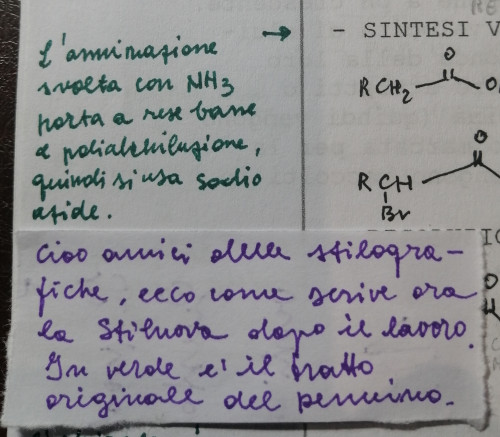 L'amminazione
svolta con NH3
porta a rese basse
e polialchilazione,
quindi si usa sodio
azide.
→ - SINTESI V
RCH2 O
RCH O
Br
Ciao amici delle stilogra-
fiche, ecco come scrive ora
la Stilnova dopo il lavoro.
In verde e' il tratto
originale del pennino.